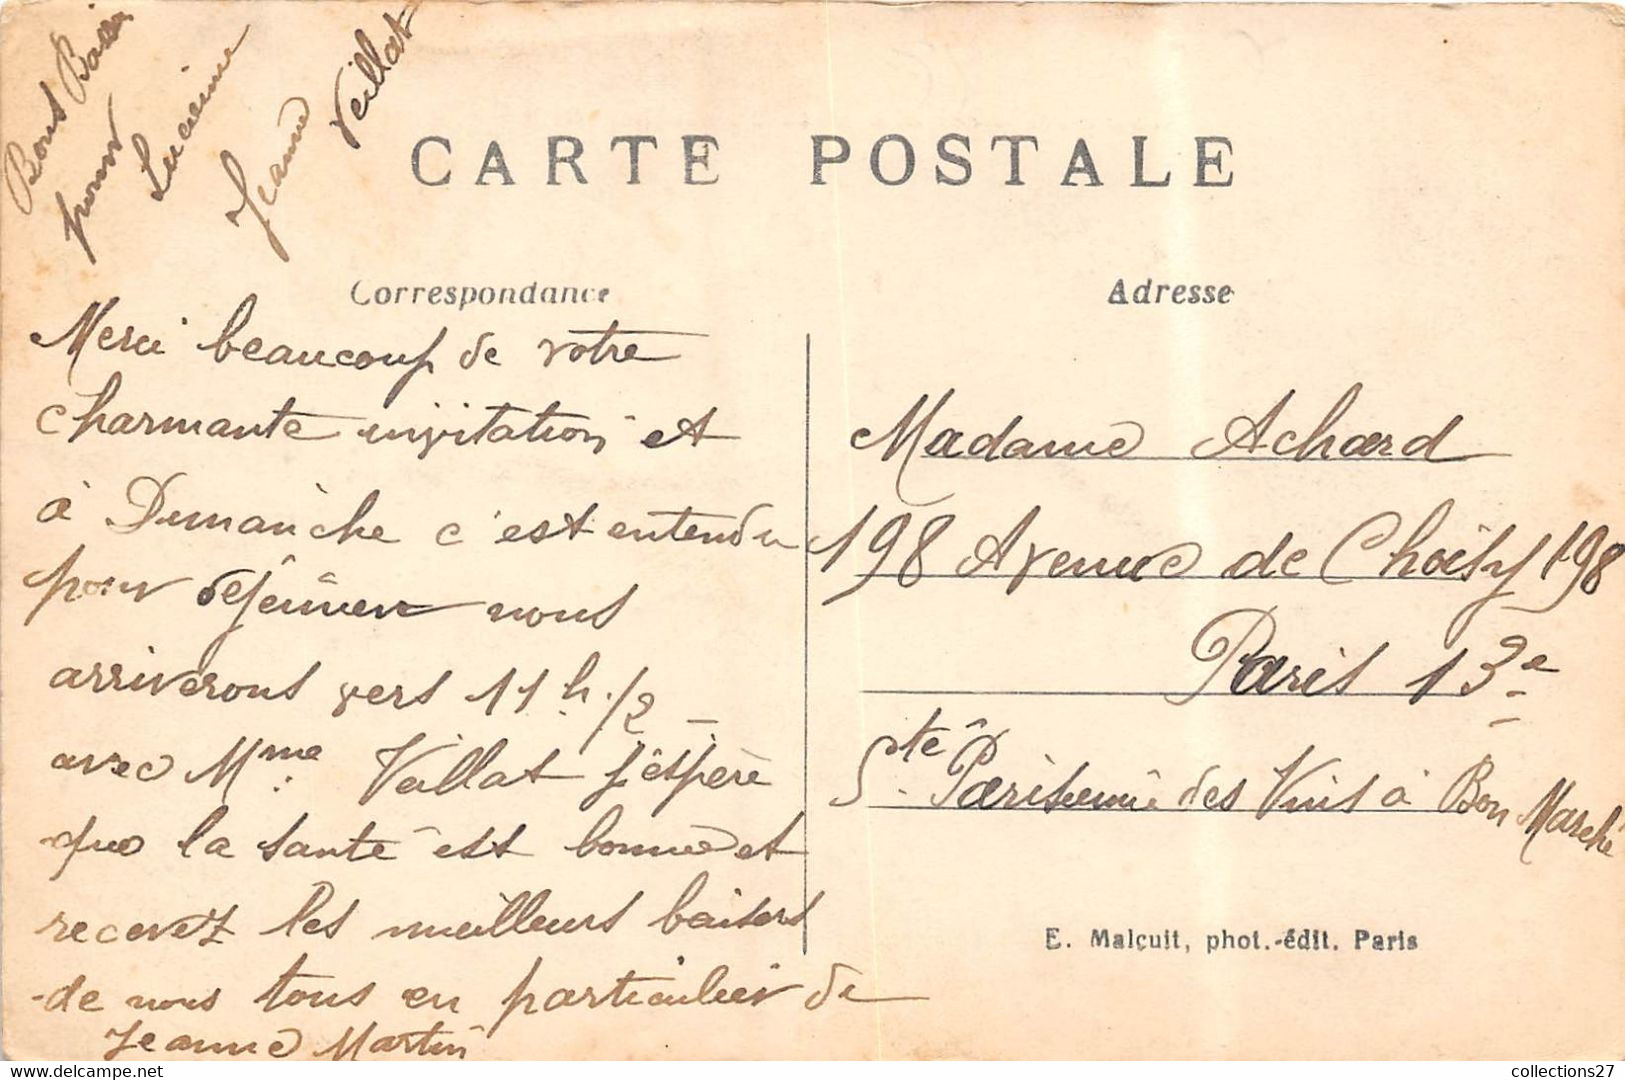 Bons Baisers
pour
Lucienne
Jeanne
Veillat
CARTE POSTALE
Correspondance
Merci beaucoup de votre
charmante invitation et
à Dimanche c'est entendu
pour déjeûner nous
arriverons vers 11 h. 1/2
avec Mme Veillat j'espère
que la santé est bonne et
recevez les meilleurs baisers
de nous tous en particulier de
Jeanne Martin
Adresse
Madame Achard
198 Avenue de Choisy 198
Paris 13e
Sté Parisienne des Vins à Bon Marché
E. Malcuit, phot.-édit. Paris
collections27